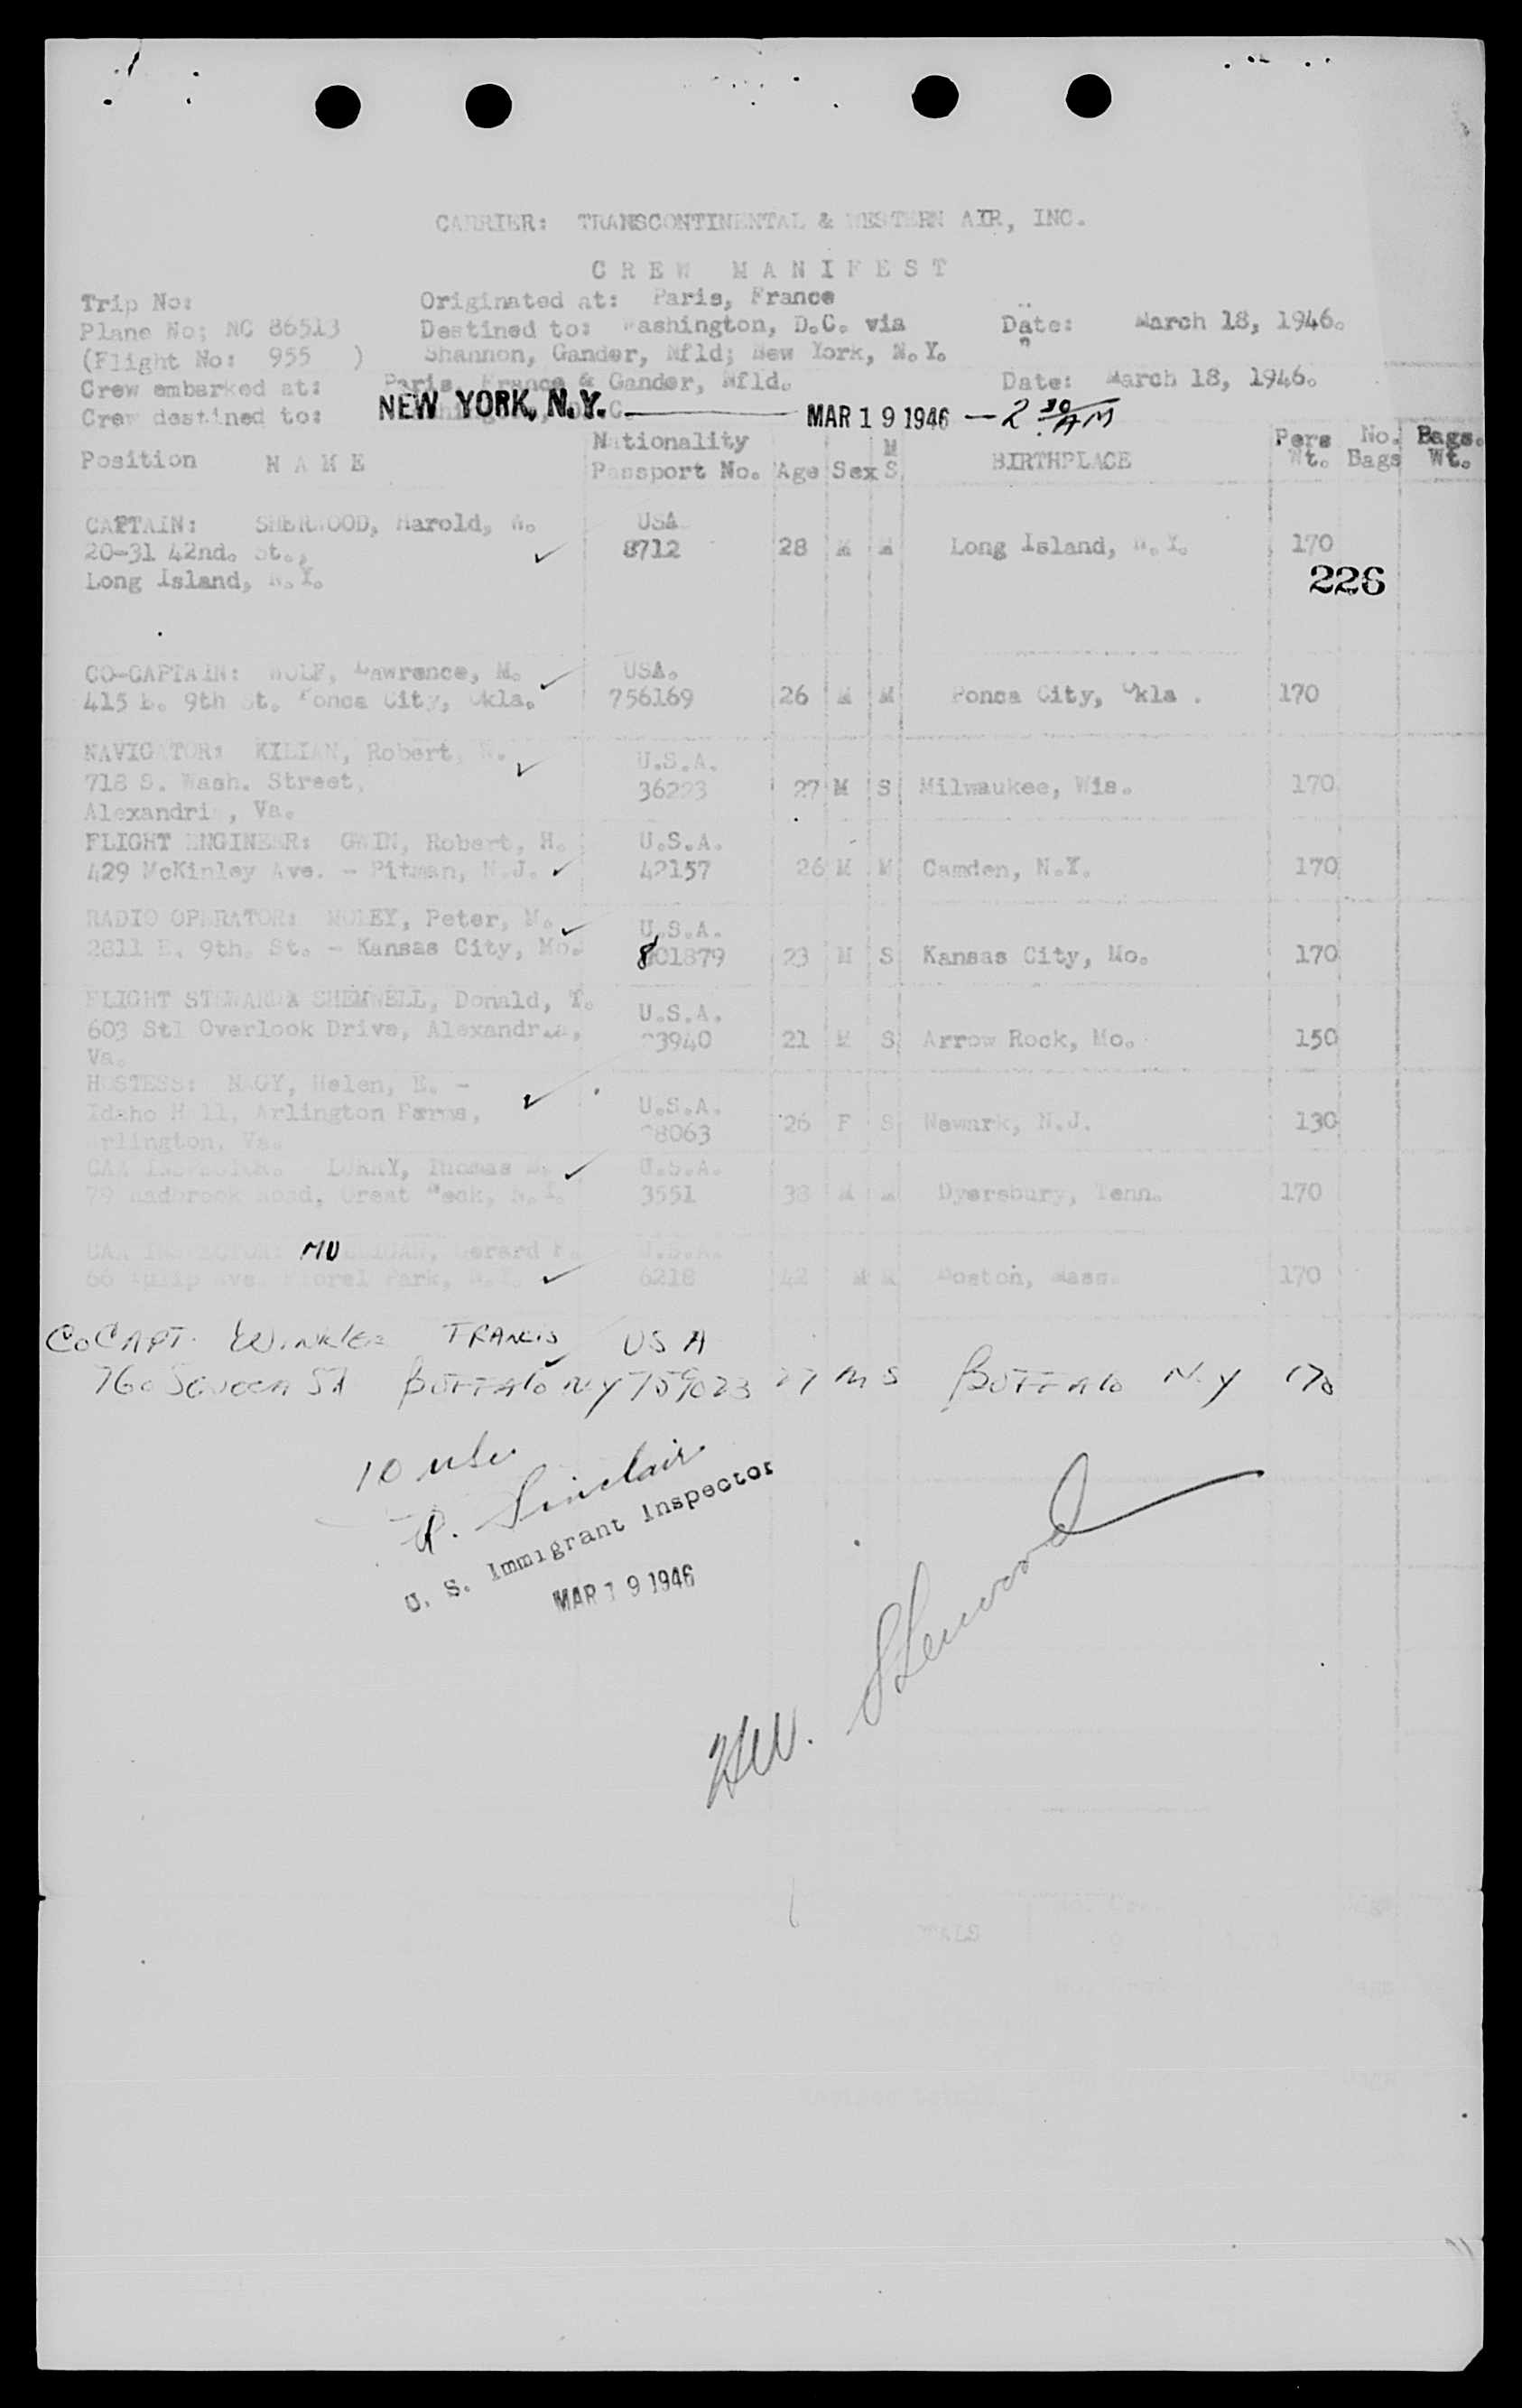 CARRIER: TRANSCONTINENTAL & WESTERN AIR, INC.
CREW MANIFEST
Trip No: Originated at: Paris, France
Plane No; NC 86513 Destined to: Washington, D.C. via Date: March 18, 1946.
(Flight No: 955 ) Shannon, Gander, Nfld; New York, N.Y.
Crew embarked at: Paris, France & Gander, Nfld. Date: March 18, 1946.
Crew destined to: NEW YORK, N.Y. MAR 19 1946 - 2 30 AM
Nationality M Pers No. Bags.
Position NAME Passport No. Age Sex S BIRTHPLACE Wt. Bags Wt.
CAPTAIN: SHERWOOD, Harold, W. USA
20-31 42nd. St., 8712 28 M M Long Island, N.Y. 170
Long Island, N.Y. 226
CO-CAPTAIN: WOLF, Lawrence, M. USA.
415 E. 9th St. Ponca City, Okla. 756169 26 M M Ponca City, Okla . 170
NAVIGATOR: KILIAN, Robert, U.S.A.
718 S. Wash. Street, 36223 27 M S Milwaukee, Wis. 170
Alexandri , Va.
FLIGHT ENGINEER: Robert, H. U.S.A.
429 McKinley Ave. - Pitman, N.J. 42157 26 M M Camden, N.Y. 170
RADIO OPERATOR: MOLEY, Peter, M. U.S.A.
2811 E. 9th. St. - Kansas City, Mo. 801879 23 M S Kansas City, Mo. 170
FLIGHT STEWARD: SHEMWELL, Donald, T. U.S.A.
603 Stl Overlook Drive, Alexandria, 3940 21 M S Arrow Rock, Mo. 150
Va.
HOSTESS: NAGY, Helen, E. -
Idaho Hall, Arlington Farms, U.S.A.
Arlington, Va. 8063 26 F S Newark, N.J. 130
CAA INSPECTOR: Thomas U.S.A.
79 Road, Great Neck, N.Y. 3551 38 M M Dyersburg, Tenn. 170
CAA INSPECTOR: MULLIGAN, Gerard U.S.A.
66 Tulip Ave. Florel Park, N.Y. 6218 42 M M Boston, Mass. 170
CO CAPT. WINKLER FRANCIS USA
760 SENECA ST BUFFALO N.Y 759023 27 M S BUFFALO N.Y 170
10 usc
Sinclair
U. S. Immigrant Inspector
MAR 19 1946
HW. Sherwood